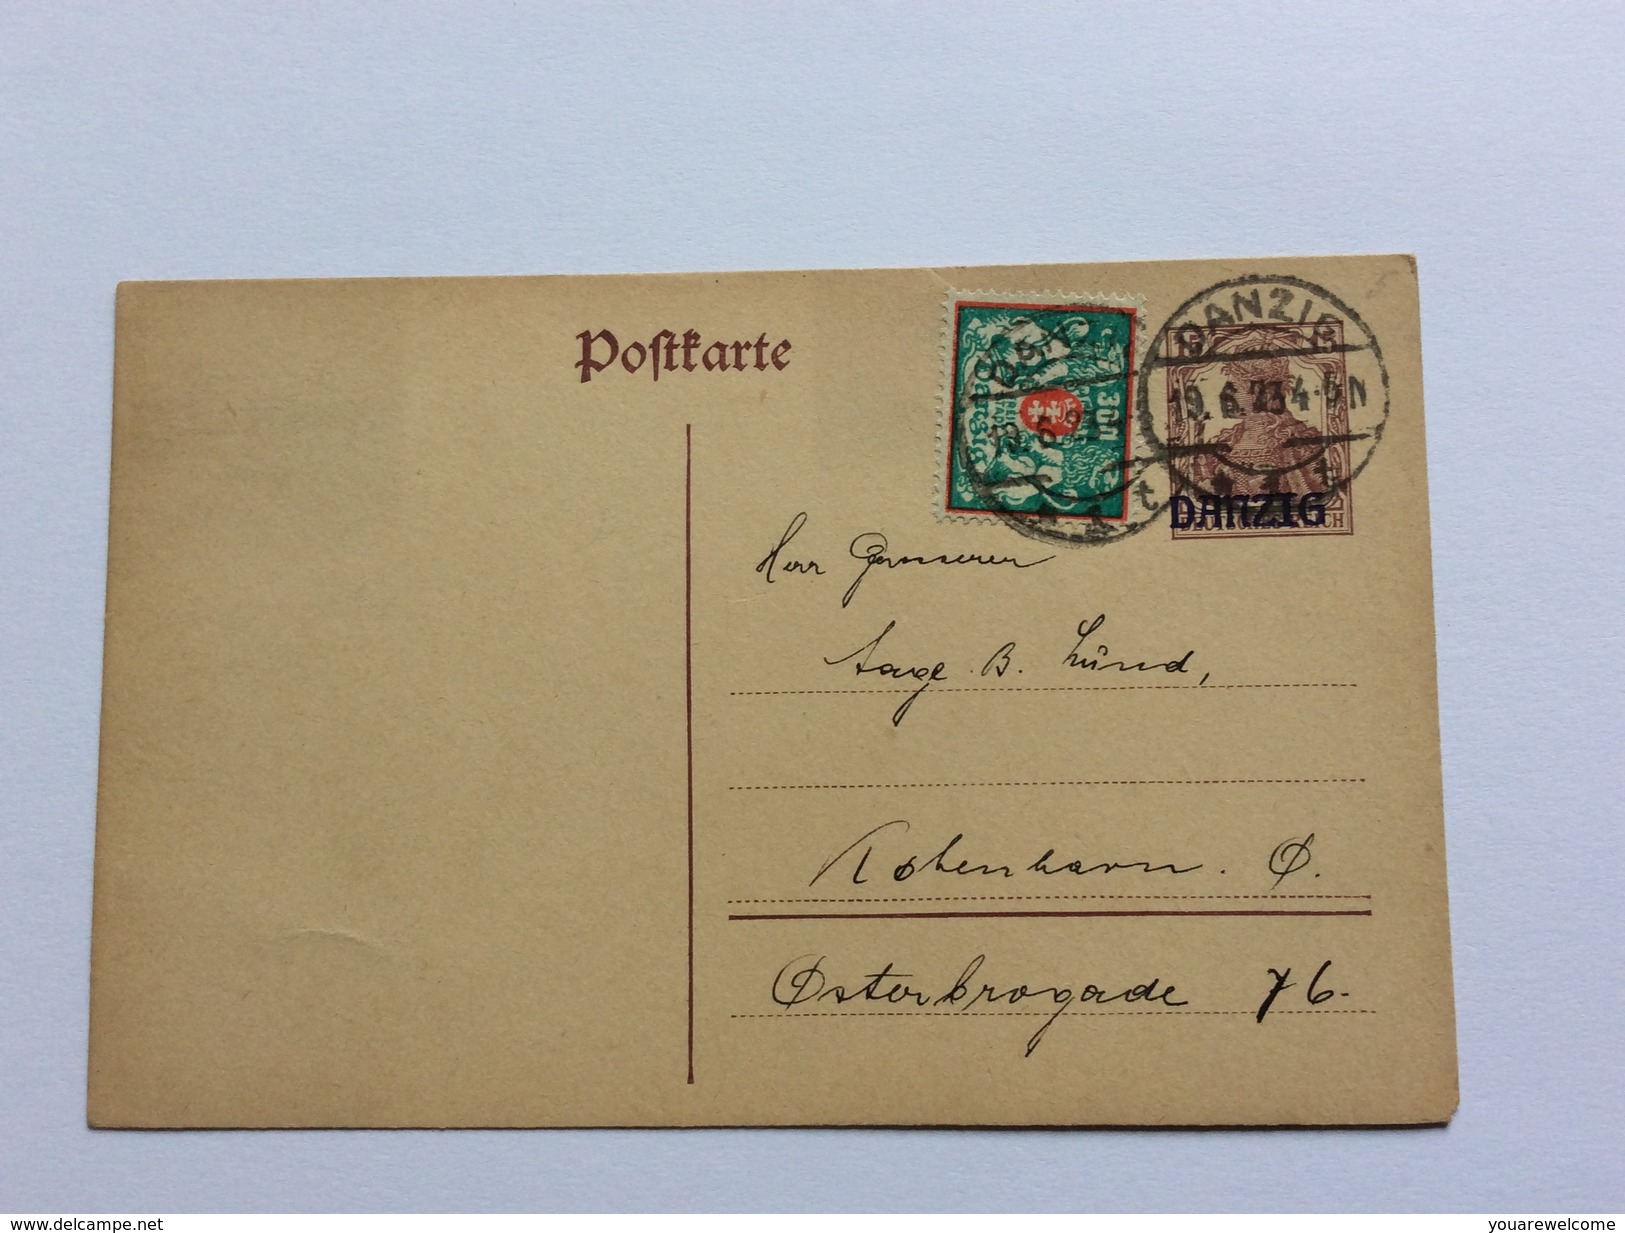 Postkarte
DANZIG
19.6.23 4-5N
15 15
300
DANZIG
DEUTSCHES REICH
Herr
Aage B. Lund,
Kobenhavn. Ø.
Østerbrogade 76.
www.delcampe.net
youarewelcome